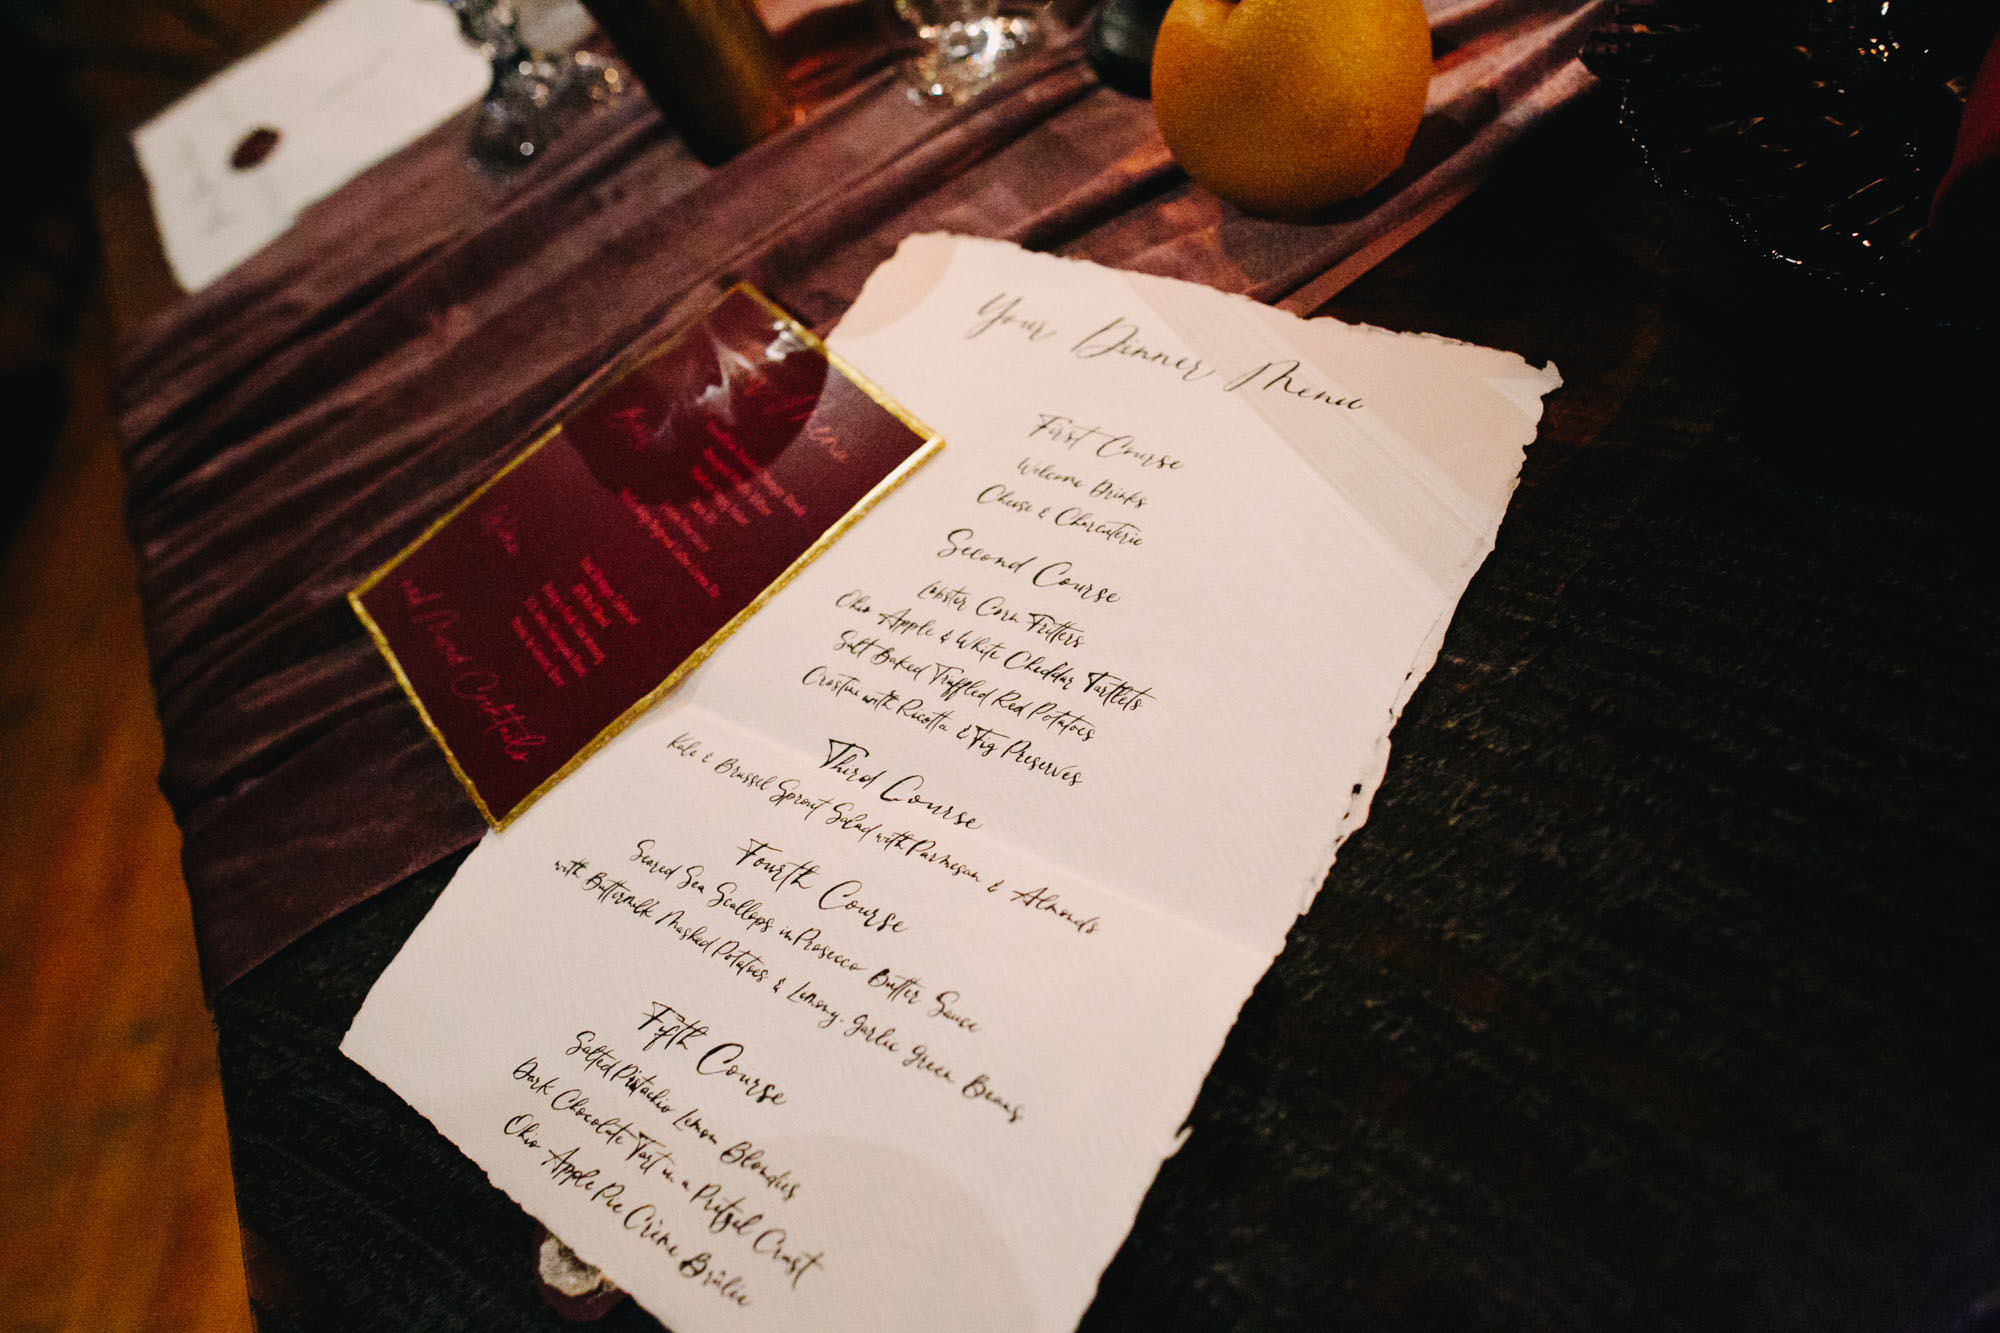 Your Dinner Menu
First Course
Welcome Drinks
Cheese & Charcuterie
Second Course
Lobster Corn Fritters
Ohio Apple & White Cheddar Tartlets
Salt Baked Truffled Red Potatoes
Crostini with Ricotta & Fig Preserves
Third Course
Kale & Brussel Sprout Salad with Parmesan & Almonds
Fourth Course
Seared Sea Scallops in Prosecco Butter Sauce
with Buttermilk Mashed Potatoes & Lemony-Garlic Green Beans
Fifth Course
Salted Pistachio Lemon Blondies
Dark Chocolate Tart in a Pretzel Crust
Ohio Apple Pie Crème Brûlée
Wine
and Mixed Cocktails